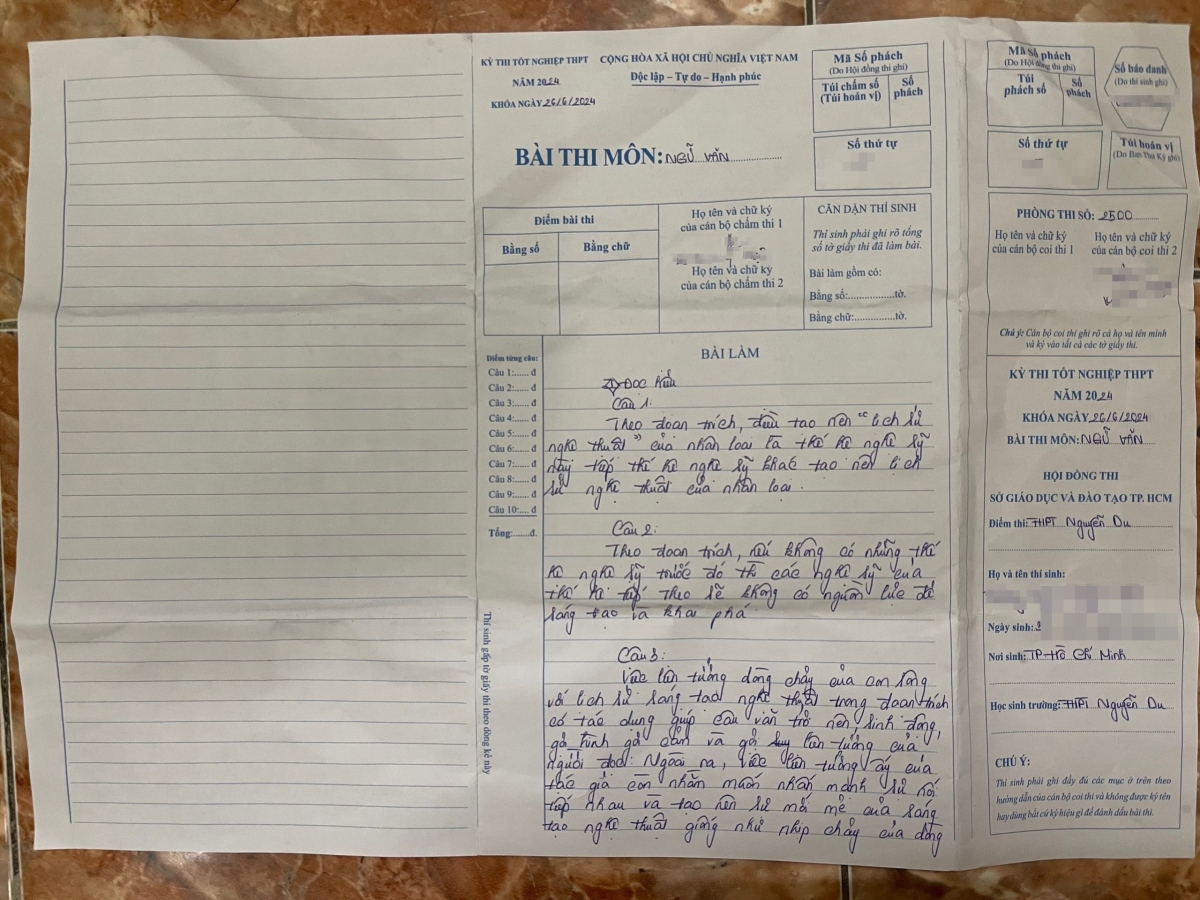 KỲ THI TỐT NGHIỆP THPT
NĂM 2024
KHÓA NGÀY 26/6/2024
CỘNG HÒA XÃ HỘI CHỦ NGHĨA VIỆT NAM
Độc lập – Tự do – Hạnh phúc
Mã Số phách
(Do Hội đồng thi ghi)
Túi chấm số
(Túi hoán vị)
Số phách
Số thứ tự
BÀI THI MÔN: NGỮ VĂN
Điểm bài thi
Bằng số
Bằng chữ
Họ tên và chữ ký
của cán bộ chấm thi 1
Họ tên và chữ ký
của cán bộ chấm thi 2
CĂN DẶN THÍ SINH
Thí sinh phải ghi rõ tổng
số tờ giấy thi đã làm bài.
Bài làm gồm có:
Bằng số:................tờ.
Bằng chữ:..............tờ.
Điểm từng câu:
Câu 1:...... đ
Câu 2:...... đ
Câu 3:...... đ
Câu 4:...... đ
Câu 5:...... đ
Câu 6:...... đ
Câu 7:...... đ
Câu 8:...... đ
Câu 9:...... đ
Câu 10:.... đ
Tổng:...... đ.
Thí sinh gấp tờ giấy thi theo dòng kẻ này
BÀI LÀM
I) Đọc hiểu
Câu 1:
Theo đoạn trích, điều tạo nên "lịch sử
nghệ thuật" của nhân loại là thế hệ nghệ sỹ
này tiếp thế hệ nghệ sỹ khác tạo nên lịch
sử nghệ thuật của nhân loại.
Câu 2:
Theo đoạn trích, nếu không có những thế
hệ nghệ sỹ trước đó thì các nghệ sỹ của
thế hệ tiếp theo sẽ không có nguồn lực để
sáng tạo và khai phá
Câu 3:
Việc liên tưởng dòng chảy của con sông
với lịch sử sáng tạo nghệ thuật trong đoạn trích
có tác dụng giúp câu văn trở nên sinh động,
gợi hình gợi cảm và gợi suy liên tưởng của
người đọc. Ngoài ra, việc liên tưởng ấy của
tác giả còn nhằm muốn nhấn mạnh sự nối
tiếp nhau và tạo nên sự mới mẻ của sáng
tạo nghệ thuật giống như nhịp chảy của dòng
Mã Số phách
(Do Hội đồng thi ghi)
Túi
phách số
Số
phách
Số báo danh
(Do thí sinh ghi)
Số thứ tự
Túi hoán vị
(Do Ban Thư Ký ghi)
PHÒNG THI SỐ: 2500
Họ tên và chữ ký
của cán bộ coi thi 1
Họ tên và chữ ký
của cán bộ coi thi 2
Chú ý: Cán bộ coi thi ghi rõ cả họ và tên mình
và ký vào tất cả các tờ giấy thi.
KỲ THI TỐT NGHIỆP THPT
NĂM 2024
KHÓA NGÀY 26/6/2024
BÀI THI MÔN: NGỮ VĂN
HỘI ĐỒNG THI
SỞ GIÁO DỤC VÀ ĐÀO TẠO TP. HCM
Điểm thi: THPT Nguyễn Du
Họ và tên thí sinh:
Ngày sinh:
Nơi sinh: TP Hồ Chí Minh
Học sinh trường: THPT Nguyễn Du
CHÚ Ý:
Thí sinh phải ghi đầy đủ các mục ở trên theo
hướng dẫn của cán bộ coi thi và không được ký tên
hay dùng bất cứ ký hiệu gì để đánh dấu bài thi.